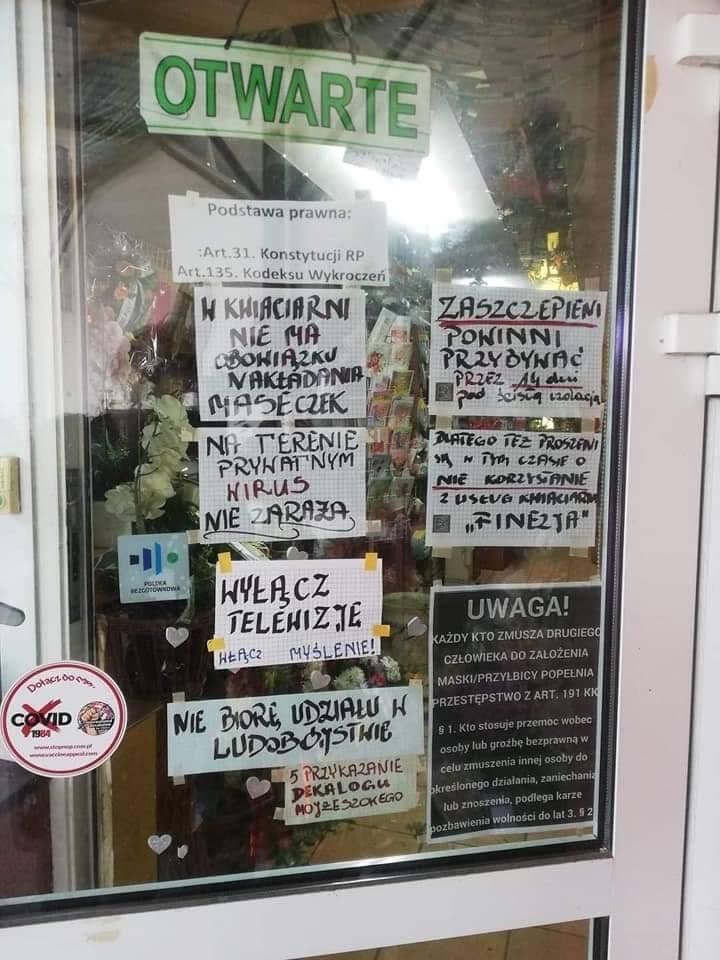 OTWARTE
Podstawa prawna:
:Art.31. Konstytucji RP
Art.135. Kodeksu Wykroczeń
W KWIACIARNI
NIE MA
OBOWIĄZKU
NAKŁADANIA
MASECZEK
NA TERENIE
PRYWATNYM
WIRUS
NIE ZARAŻA
ZASZCZEPIENI
POWINNI
PRZYBYWAĆ
PRZEZ 14 dni
pod ścisłą izolacją
DLATEGO TEŻ PROSZENI
SĄ W TYM CZASIE O
NIE KORZYSTANIE
Z USŁUG KWIACIARNI
„FINEZJA"
POLSKA
BEZGOTÓWKOWA
WYŁĄCZ
TELEWIZJE
WŁĄCZ MYŚLENIE!
Dołącz do
COVID
1984
www.stopnop.com.pl
www.vaccineappeal.com
NIE BIORĘ UDZIAŁU W
LUDOBÓJSTWIE
5 PRZYKAZANIE
DEKALOGU
MOJŻESZOKEGO
UWAGA!
KAŻDY KTO ZMUSZA DRUGIEGO
CZŁOWIEKA DO ZAŁOŻENIA
MASKI/PRZYLBICY POPEŁNIA
PRZESTĘPSTWO Z ART. 191 KK
§ 1. Kto stosuje przemoc wobec
osoby lub groźbę bezprawną w
celu zmuszenia innej osoby do
określonego działania, zaniechania
lub znoszenia, podlega karze
pozbawienia wolności do lat 3. § 2